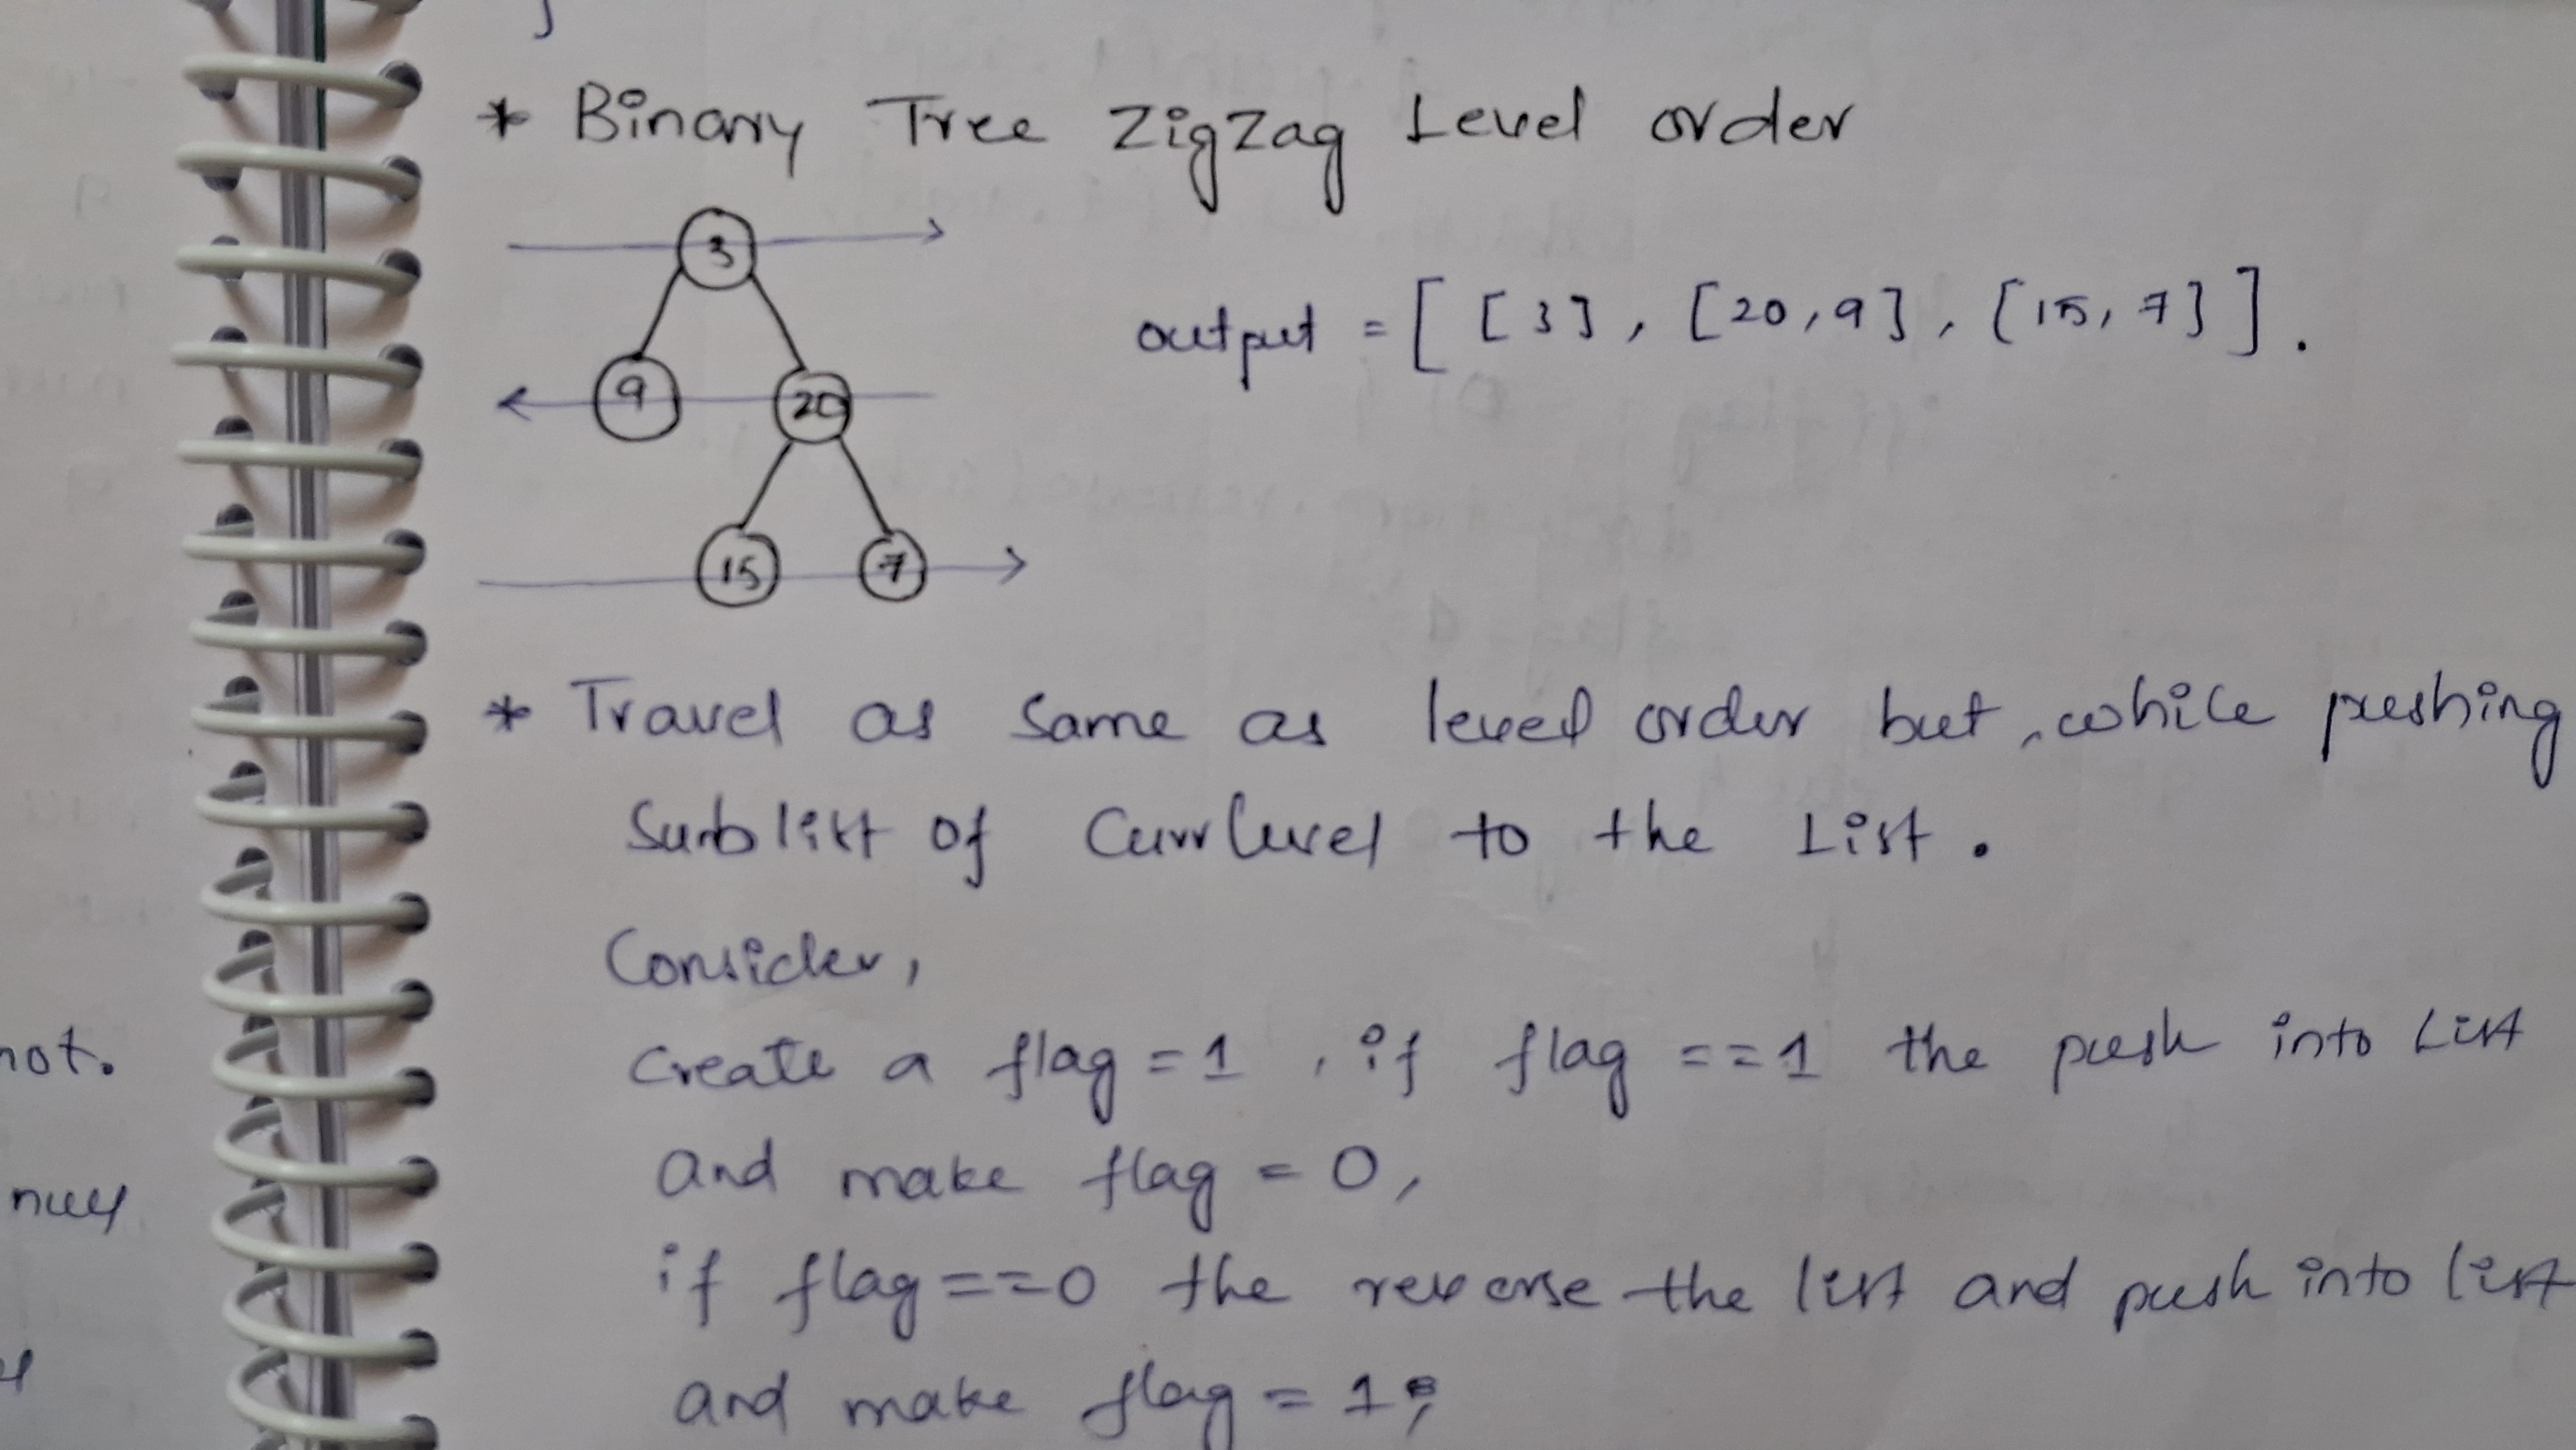 not.
nuly
* Binary Tree ZigZag Level order
3
9
20
15
7
output = [ [3], [20,9], [15,7] ].
* Travel as same as level order but, while pushing
Sublist of CurrLevel to the List.
Consider,
create a flag = 1, if flag == 1 the push into List
and make flag = 0,
if flag == 0 the reverse the list and push into list
and make flag = 1;